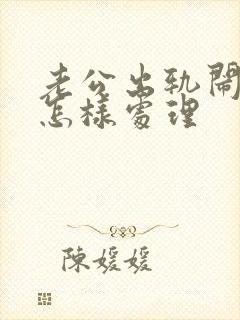 老公出軌鬧
怎樣處理
陳媛媛